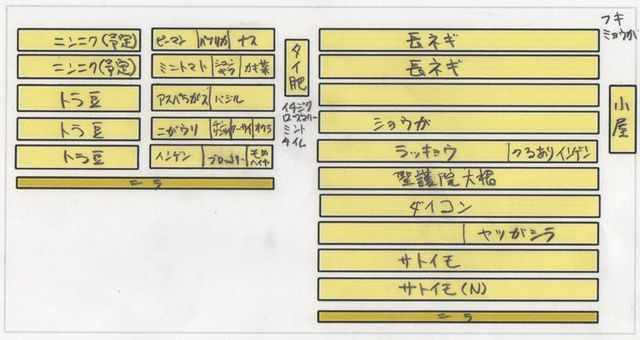 ニンニク(予定)
ニンニク(予定)
トラ豆
トラ豆
トラ豆
ピーマン パプリカ ナス
ミニトマト カキ菜
アスパラガス バジル
ニガウリ オクラ
インゲン ブロッコリー
ニラ
タイ肥
イチジク
ローズマリー
ミント
タイム
長ネギ
長ネギ
ショウガ
ラッキョウ つるありインゲン
聖護院大根
ダイコン
ヤツガシラ
サトイモ
サトイモ(N)
ニラ
フキ
ミョウガ
小屋